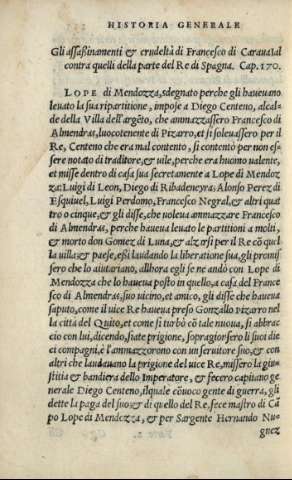 HISTORIA GENERALE
Gli assaßinamenti & crudeltà di Francesco di Caruaial
contra quelli della parte del Re di Spagna. Cap. 170.
LOPE di Mendozza, sdegnato perche gli haueuano
leuato la sua ripartitione, impose a Diego Centeno, alcal-
de della Villa dell'argẽto, che ammazzassero Francesco di
Almendras, luocotenente di Pizarro, et si soleuassero per il
Re, Centeno che era mal contento, si contentò per non es-
sere notato di traditore, & uile, perche era huomo ualente,
et misse dentro di casa sua secretamente a Lope di Mendoz
za: Luigi di Leon, Diego di Ribadeneyra: Alonso Perez di
Esquiuel, Luigi Perdomo, Francesco Negral, & altri quat
tro o cinque, & gli disse, che uoleua ammazzare Francesco
di Almendras, perche haueua leuato le partitioni a molti,
& morto don Gomez di Luna, & alzarsi per il Re cõ quel
la uilla: & paese, eßi laudando la liberatione sua, gli promis
sero che lo aiutariano, allhora egli se ne andò con Lope di
Mendozza che lo haueua posto in quello, a casa del France
sco di Almendras, suo uicino, et amico, gli disse che haueua
saputo, come il uice Re haueua preso Gonzallo pizarro nel
la città del Quito, et come si turbò cõ tale nuoua, si abbrac
ciò con lui, dicendo, siate prigione, sopragiorsero li suoi die
ci compagni, è l'ammazzorono con un seruitore suo, & con
altri che laudauano la prigione del uice Re, missero la giu-
stitia & bandiera dello Imperatore, & fecero capitano ge
nerale Diego Centeno, ilquale cõuocò gente di guerra, gli
dette la paga del suo: & di quello del Re, fece mastro di Cã
po Lope di Mendozza, & per Sargente Hernando Nu-
gnez